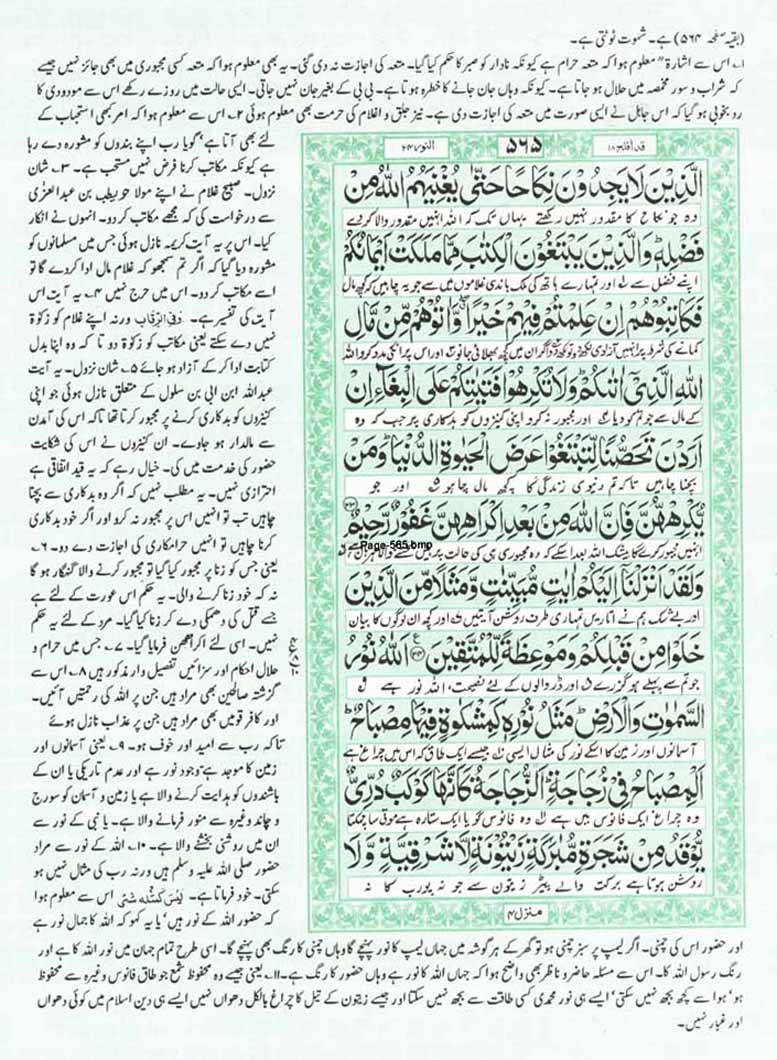 (بقیہ صفحہ ۵۶۴) ہے۔ شہوت ٹوٹتی ہے۔
۱۔ اس سے اشارۃً معلوم ہوا کہ متعہ حرام ہے کیونکہ نادار کو صبر کا حکم کیا گیا۔ متعہ کی اجازت نہ دی گئی۔ یہ بھی معلوم ہوا کہ متعہ کسی مجبوری میں بھی جائز نہیں جیسے
کہ شراب و سور مخمصہ میں حلال ہو جاتا ہے۔ کیونکہ وہاں جان جانے کا خطرہ ہوتا ہے۔ بی بی کے بغیر جان نہیں جاتی۔ ایسی حالت میں روزے رکھے اس سے مودودی کا
رد بخوبی ہو گیا کہ اس جاہل نے ایسی صورت میں متعہ کی اجازت دی ہے۔ نیز جلق و اغلام کی حرمت بھی معلوم ہوئی ۲۔ اس سے معلوم ہوا کہ امر کبھی استحباب کے
لئے بھی آتا ہے گویا رب اپنے بندوں کو مشورہ دے رہا
ہے کیونکہ مکاتب کرنا فرض نہیں مستحب ہے۔ ۳۔ شان
نزول۔ صبیح غلام نے اپنے مولا حویطب بن عبدالعزی
سے درخواست کی کہ مجھے مکاتب کر دو۔ انہوں نے انکار
کیا۔ اس پر یہ آیت کریمہ نازل ہوئی جس میں مسلمانوں کو
مشورہ دیا گیا کہ اگر تم سمجھو کہ غلام مال ادا کر دے گا تو
اسے مکاتب کر دو۔ اس میں حرج نہیں ۴۔ یہ آیت اس
آیت کی تفسیر ہے۔ وَفِی الرِّقَابِ ورنہ اپنے غلام کو زکوٰۃ
نہیں دے سکتے یعنی مکاتب کو زکوٰۃ دو تا کہ وہ اپنا بدل
کتابت ادا کر کے آزاد ہو جائے ۵۔ شان نزول۔ یہ آیت
عبداللہ ابن ابی بن سلول کے متعلق نازل ہوئی جو اپنی
کنیزوں کو بدکاری کرنے پر مجبور کرتا تھا تاکہ اس کی آمدن
سے مالدار ہو جاوے۔ ان کنیزوں نے اس کی شکایت
حضور کی خدمت میں کی۔ خیال رہے کہ یہ قید اتفاقی ہے
احترازی نہیں۔ یہ مطلب نہیں کہ اگر وہ بدکاری سے بچنا
چاہیں تب تو انہیں اس پر مجبور نہ کرو اور اگر خود بدکاری
کرنا چاہیں تو انہیں حرامکاری کی اجازت دے دو۔ ۶۔
یعنی جس کو زنا پر مجبور کیا گیا تو مجبور کرنے والا گنہگار ہو گا
نہ کہ خود زنا کرنے والی۔ یہ حکم اس عورت کے لئے ہے
جسے قتل کی دھمکی دے کر زنا کیا گیا۔ مرد کے لئے یہ حکم
نہیں۔ اسی لئے اکراھھن فرمایا گیا۔ ۷۔ جس میں حرام و
حلال احکام اور سزائیں تفصیل وار مذکور ہیں ۸۔ اس سے
گزشتہ صالحین بھی مراد ہیں جن پر اللہ کی رحمتیں آئیں۔
اور کافر قومیں بھی مراد ہیں جن پر عذاب نازل ہوئے
تاکہ رب سے امید اور خوف ہو۔ ۹۔ یعنی آسمانوں اور
زمین کا موجد ہے وجود نور ہے اور عدم تاریکی یا ان کے
باشندوں کو ہدایت کرنے والا ہے یا زمین و آسمان کو سورج
و چاند وغیرہ سے منور فرمانے والا ہے۔ یا نبی کے نور سے
ان میں روشنی بخشنے والا ہے۔ ۱۰۔ اللہ کے نور سے مراد
حضور صلی اللہ علیہ وسلم ہیں ورنہ رب کی مثال نہیں ہو
سکتی۔ خود فرماتا ہے۔ لَیْسَ کَمِثْلِہٖ شَیْءٌ اس سے معلوم ہوا
کہ حضور اللہ کے نور ہیں، یا یہ کہو کہ اللہ کا جمال نور ہے
قد افلح ۱۸
۵۶۵
النور ۲۴
الَّذِیْنَ لَا یَجِدُوْنَ نِکَاحًا حَتّٰی یُغْنِیَهُمُ اللّٰهُ مِنْ
وہ جو نکاح کا مقدور نہیں رکھتے یہاں تک کہ اللہ انہیں مقدور والا کردے
فَضْلِهٖ وَالَّذِیْنَ یَبْتَغُوْنَ الْکِتٰبَ مِمَّا مَلَکَتْ اَیْمَانُکُمْ
اپنے فضل سے ۱ اور تمہارے ہاتھ کی ملک باندی غلاموں میں سے جو یہ چاہیں کہ کچھ مال
فَکَاتِبُوْهُمْ اِنْ عَلِمْتُمْ فِیْهِمْ خَیْرًا وَّاٰتُوْهُمْ مِّنْ مَّالِ
کمانے کی شرط پر انہیں آزادی لکھ دو تو لکھ دو اگر ان میں کچھ بھلائی جانو اور اس پر انکی مدد کرو اللہ
اللّٰهِ الَّذِیْ اٰتٰکُمْ وَلَا تُکْرِهُوْا فَتَیٰتِکُمْ عَلَی الْبِغَآءِ اِنْ
کے مال سے جو تم کو دیا اور مجبور نہ کرو اپنی کنیزوں کو بدکاری پر جب کہ وہ
اَرَدْنَ تَحَصُّنًا لِّتَبْتَغُوْا عَرَضَ الْحَیٰوةِ الدُّنْیَا وَمَنْ
بچنا چاہیں تاکہ تم دنیوی زندگی کا کچھ مال چاہو ۵ اور جو
یُّکْرِهْهُّنَّ فَاِنَّ اللّٰهَ مِنْ بَعْدِ اِکْرَاهِهِنَّ غَفُوْرٌ رَّحِیْمٌ
انہیں مجبور کرے گا تو بیشک اللہ بعد اسکے کہ وہ مجبوری ہی کی حالت پر رہیں بخشنے والا مہربان ہے
Page-565.bmp
وَلَقَدْ اَنْزَلْنَاۤ اِلَیْکُمْ اٰیٰتٍ مُّبَیِّنٰتٍ وَّمَثَلًا مِّنَ الَّذِیْنَ
اور بے شک ہم نے اتاریں تمہاری طرف روشن آیتیں ۷ اور کچھ ان لوگوں کا بیان
خَلَوْا مِنْ قَبْلِکُمْ وَمَوْعِظَةً لِّلْمُتَّقِیْنَ اَللّٰهُ نُوْرُ
جو تم سے پہلے ہو گزرے ۸ اور ڈر والوں کے لئے نصیحت، اللہ نور ہے ۹
السَّمٰوٰتِ وَالْاَرْضِ مَثَلُ نُوْرِهٖ کَمِشْکٰوةٍ فِیْهَا مِصْبَاحٌ
آسمانوں اور زمین کا اسکے نور کی مثال ایسی ۱۰ جیسے ایک طاق کہ اس میں چراغ ہے
اَلْمِصْبَاحُ فِیْ زُجَاجَةٍ اَلزُّجَاجَةُ کَاَنَّهَا کَوْکَبٌ دُرِّیٌّ
وہ چراغ ایک فانوس میں ہے ۱۱ وہ فانوس گویا ایک ستارہ ہے موتی سا چمکتا
یُّوْقَدُ مِنْ شَجَرَةٍ مُّبٰرَکَةٍ زَیْتُوْنَةٍ لَّا شَرْقِیَّةٍ وَّلَا
روشن ہوتا ہے برکت والے پیڑ زیتون سے جو نہ پورب کا نہ
منزل ۴
اور حضور اس کی چمنی۔ اگر لیمپ پر سبز چمنی ہو تو گھر کے ہر گوشہ میں جہاں لیمپ کا نور پہنچے گا وہاں چمنی کا رنگ بھی پہنچے گا۔ اسی طرح تمام جہان میں نور اللہ کا ہے اور
رنگ رسول اللہ کا۔ اس سے مسئلہ حاضر و ناظر بھی واضح ہوا کہ جہاں اللہ کا نور ہے وہاں حضور کا رنگ ہے۔ ۱۱۔ یعنی جیسے وہ محفوظ شمع جو طاق فانوس وغیرہ سے محفوظ
ہو، ہوا سے کچھ بجھ نہیں سکتی، ایسے ہی نور محمدی کسی طاقت سے بجھ نہیں سکتا اور جیسے زیتون کے تیل کا چراغ بالکل دھواں نہیں ایسے ہی دین اسلام میں کوئی دھواں
اور غبار نہیں۔